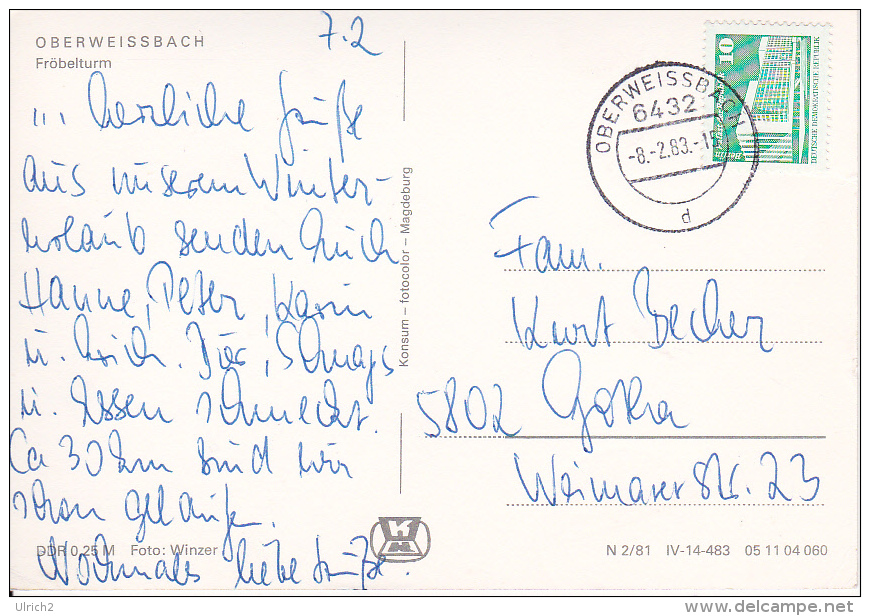 OBERWEISSBACH
Fröbelturm
7.2
... herzliche Grüße
aus unserem Winter-
urlaub senden Euch
Hanne, Peter, Karin
u. Erich. Bier, Schnaps
u. Essen schmeckt.
Ca 30 km sind wir
schon gelaufen.
Nochmals liebe Grüße.
DDR 0,25 M Foto: Winzer
Konsum – fotocolor – Magdeburg
OBERWEISSBACH
6432
-8.-2.83.-15
d
10
DEUTSCHE DEMOKRATISCHE REPUBLIK
Fam.
Kurt Becher
5802 Gotha
Weimarer Str. 23
N 2/81 IV-14-483 05 11 04 060
Ulrich2
www.delcampe.net